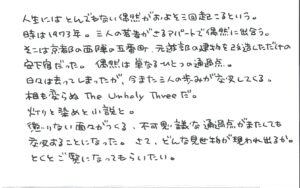 人生にはとんでもない偶然がおよそ三回起こるという。
時は1973年。三人の若者がさるアパートで偶然に出会う。
そこは京都の西陣の五番町、元遊郭の建物を改造しただけの
安下宿だった。偶然は単なるひとつの通過点。
日々は去ってしまったが、今また三人の歩みが交叉してくる。
相も変らぬ The Unholy Three だ。
灯りと染めと小説と。
懲りない面々がつくる、不可思議な通過点がまたしても
交叉することになった。さて、どんな見世物が現われ出るか。
とくとご覧になってもらいたい。